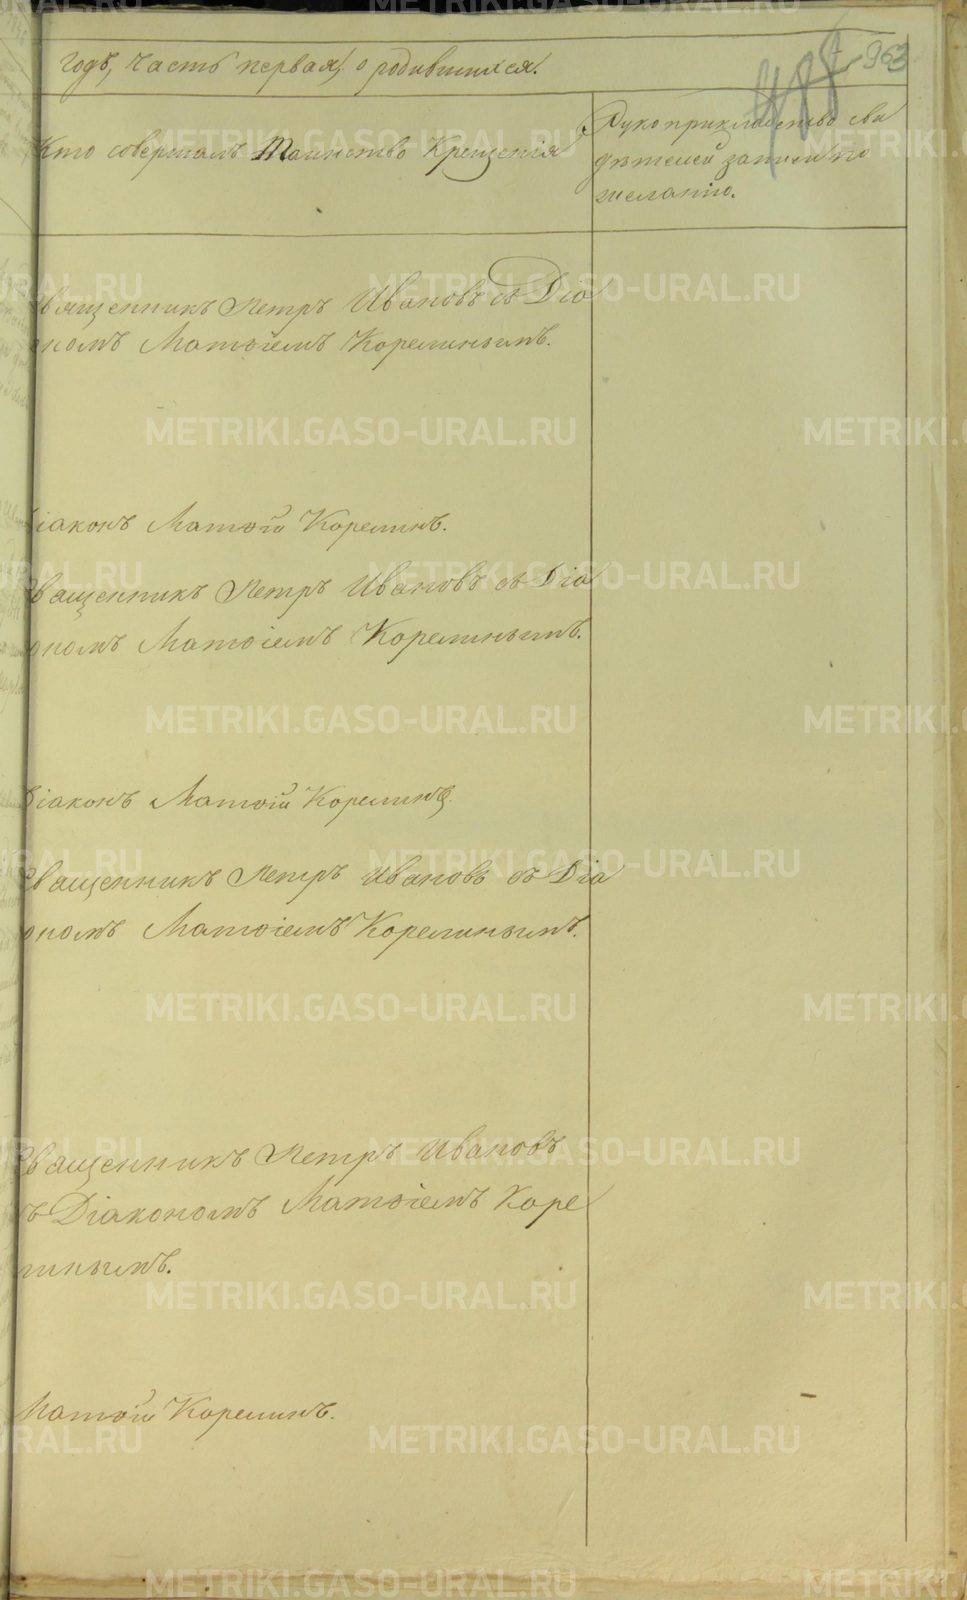 963
годъ, часть первая, о родившихся.
Кто совершалъ таинство Крещенія
Рукоприкладство сви
дѣтелей записи по
желанію.
вященникъ Петръ Ивановъ съ Діа
ономъ Матѳіемъ Корелинымъ.
Діаконъ Матѳій Корелинъ.
вященникъ Петръ Ивановъ съ Діа
ономъ Матѳіемъ Корелинымъ.
Діаконъ Матѳій Корелинъ.
вященникъ Петръ Ивановъ съ Діа
ономъ Матѳіемъ Корелинымъ.
вященникъ Петръ Ивановъ
ъ Діакономъ Матѳіемъ Коре
линымъ.
Матѳій Корелинъ.
METRIKI.GASO-URAL.RU